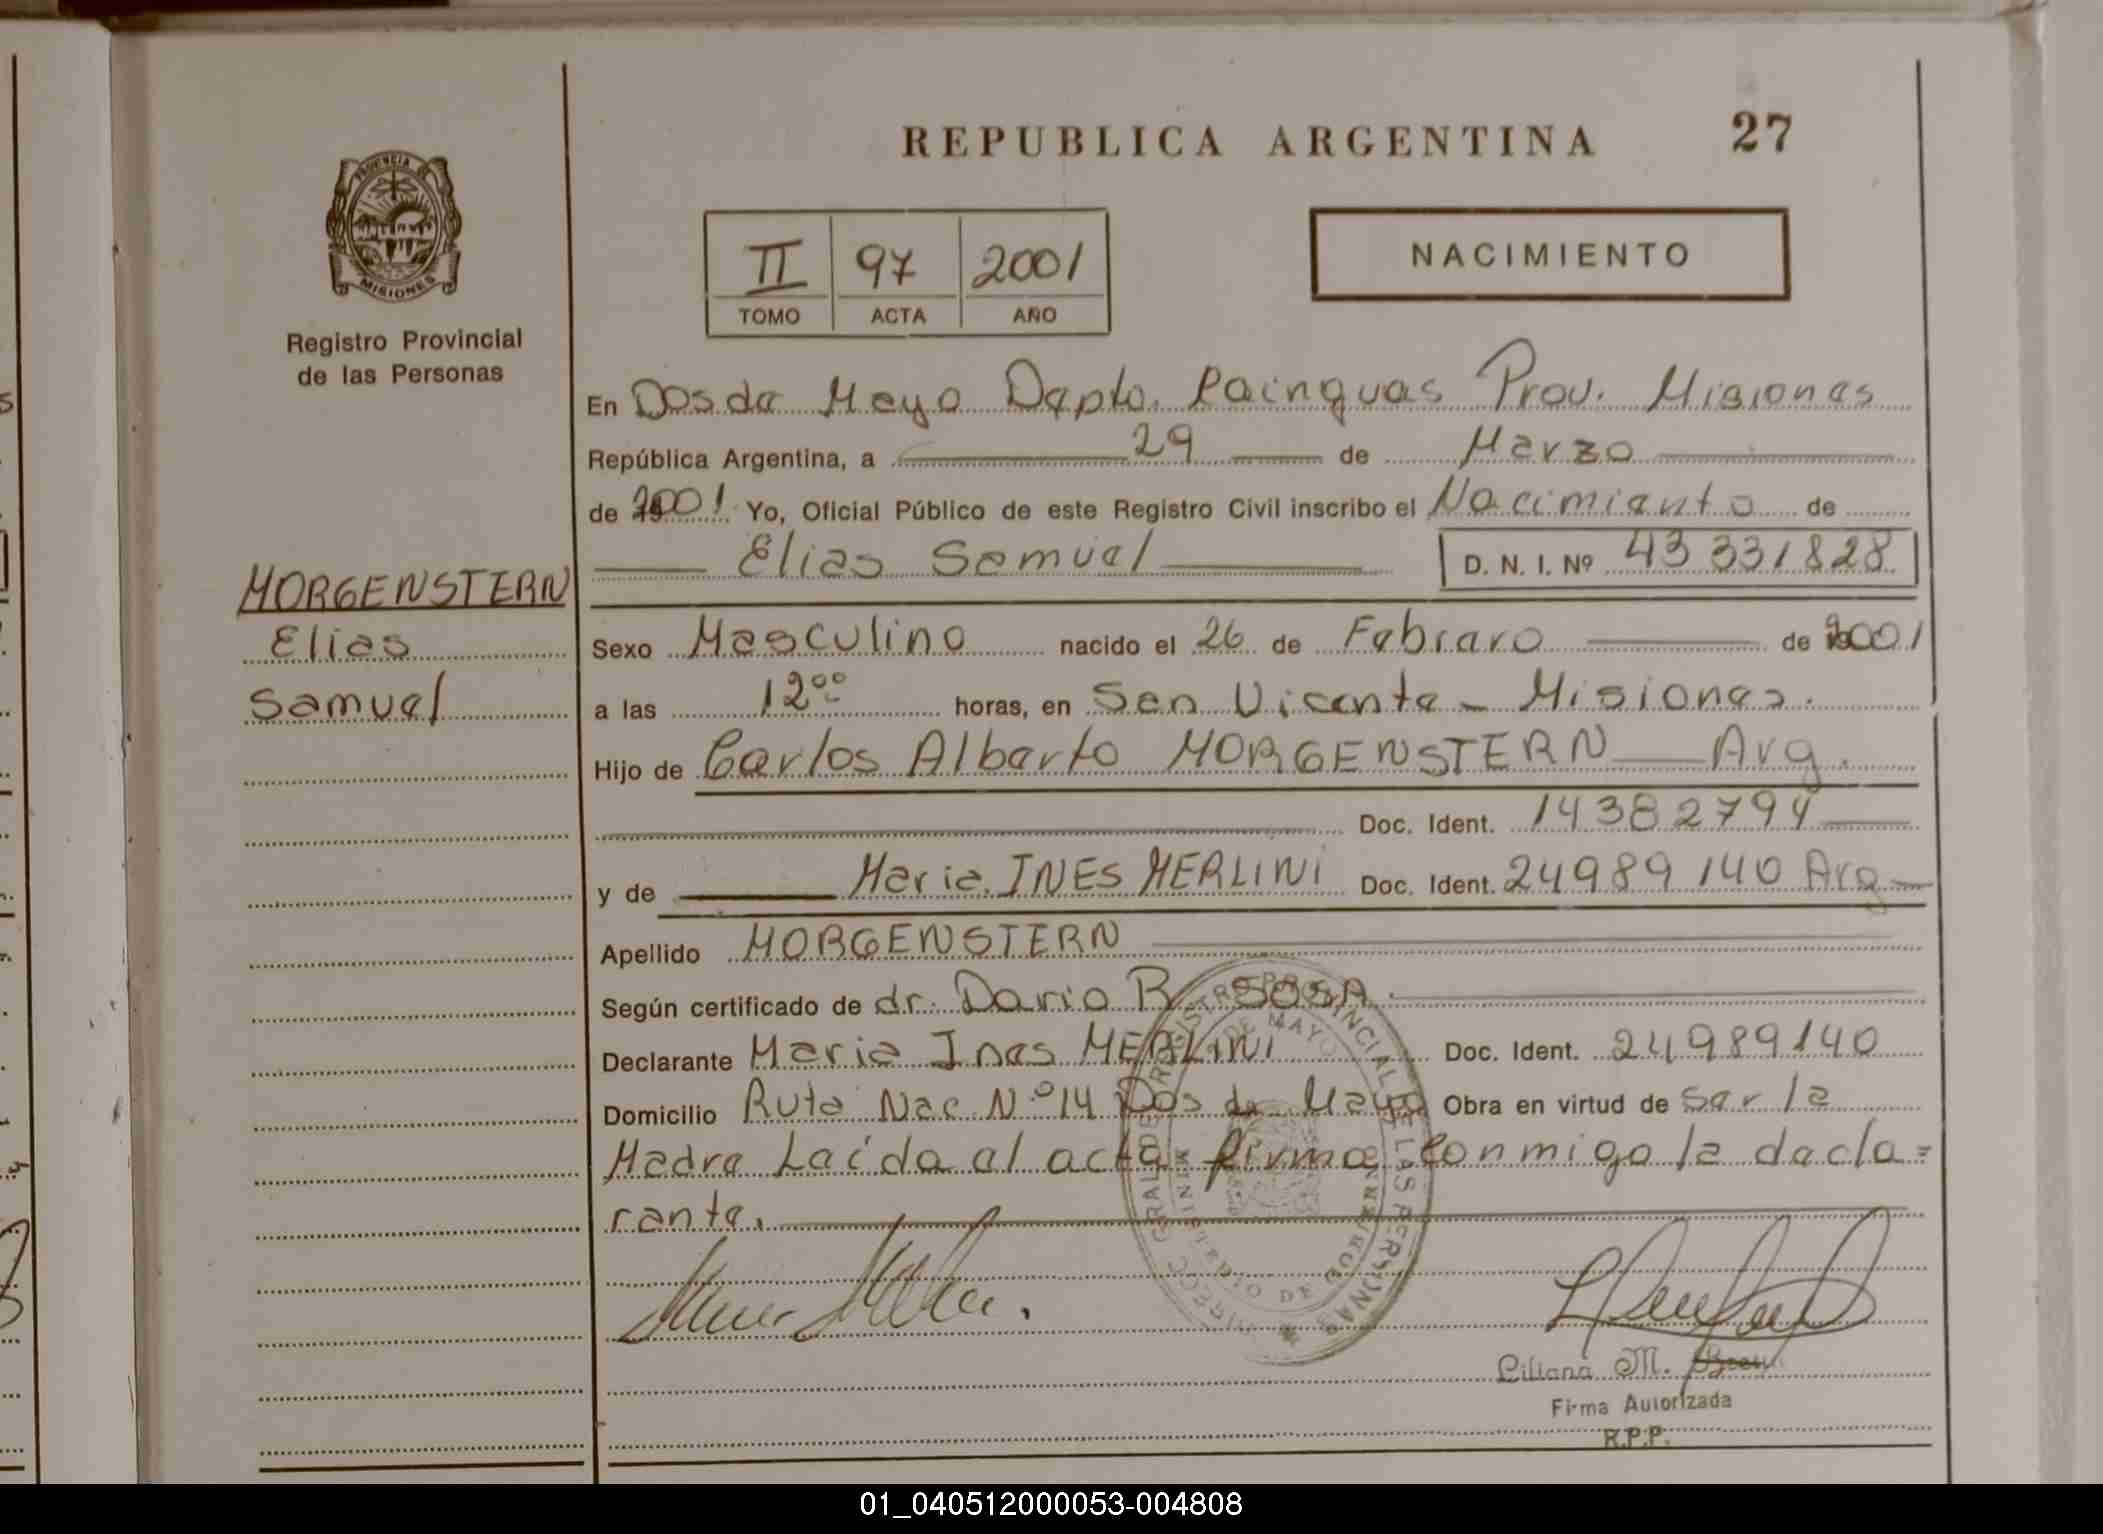 REPUBLICA ARGENTINA 27
PROVINCIA DE
MISIONES
Registro Provincial
de las Personas
II 97 2001
TOMO ACTA AÑO
NACIMIENTO
En Dos de Mayo Dapto. Cainguas Prov. Misiones
República Argentina, a 29 de Marzo
de 2001. Yo, Oficial Público de este Registro Civil inscribo el Nacimiento de
Elias Samuel D. N. I. Nº 43 331828
MORGENSTERN
Elias
Samuel
Sexo Masculino nacido el 26 de Febraro de 2001
a las 12⁰⁰ horas, en San Vicente - Misiones.
Hijo de Carlos Alberto MORGENSTERN Arg.
Doc. Ident. 14382794
y de Maria INES MERLINI Doc. Ident. 24989140 Arg
Apellido MORGENSTERN
Según certificado de dr. Dario R. SOSA.
Declarante Maria Ines MERLINI Doc. Ident. 24989140
Domicilio Ruta Nac Nº14 Dos de Mayo Obra en virtud de ser la
Madre Leída al acta firma conmigo la decla=
rante.
Liliana M.
Firma Autorizada
R.P.P.
01_040512000053-004808